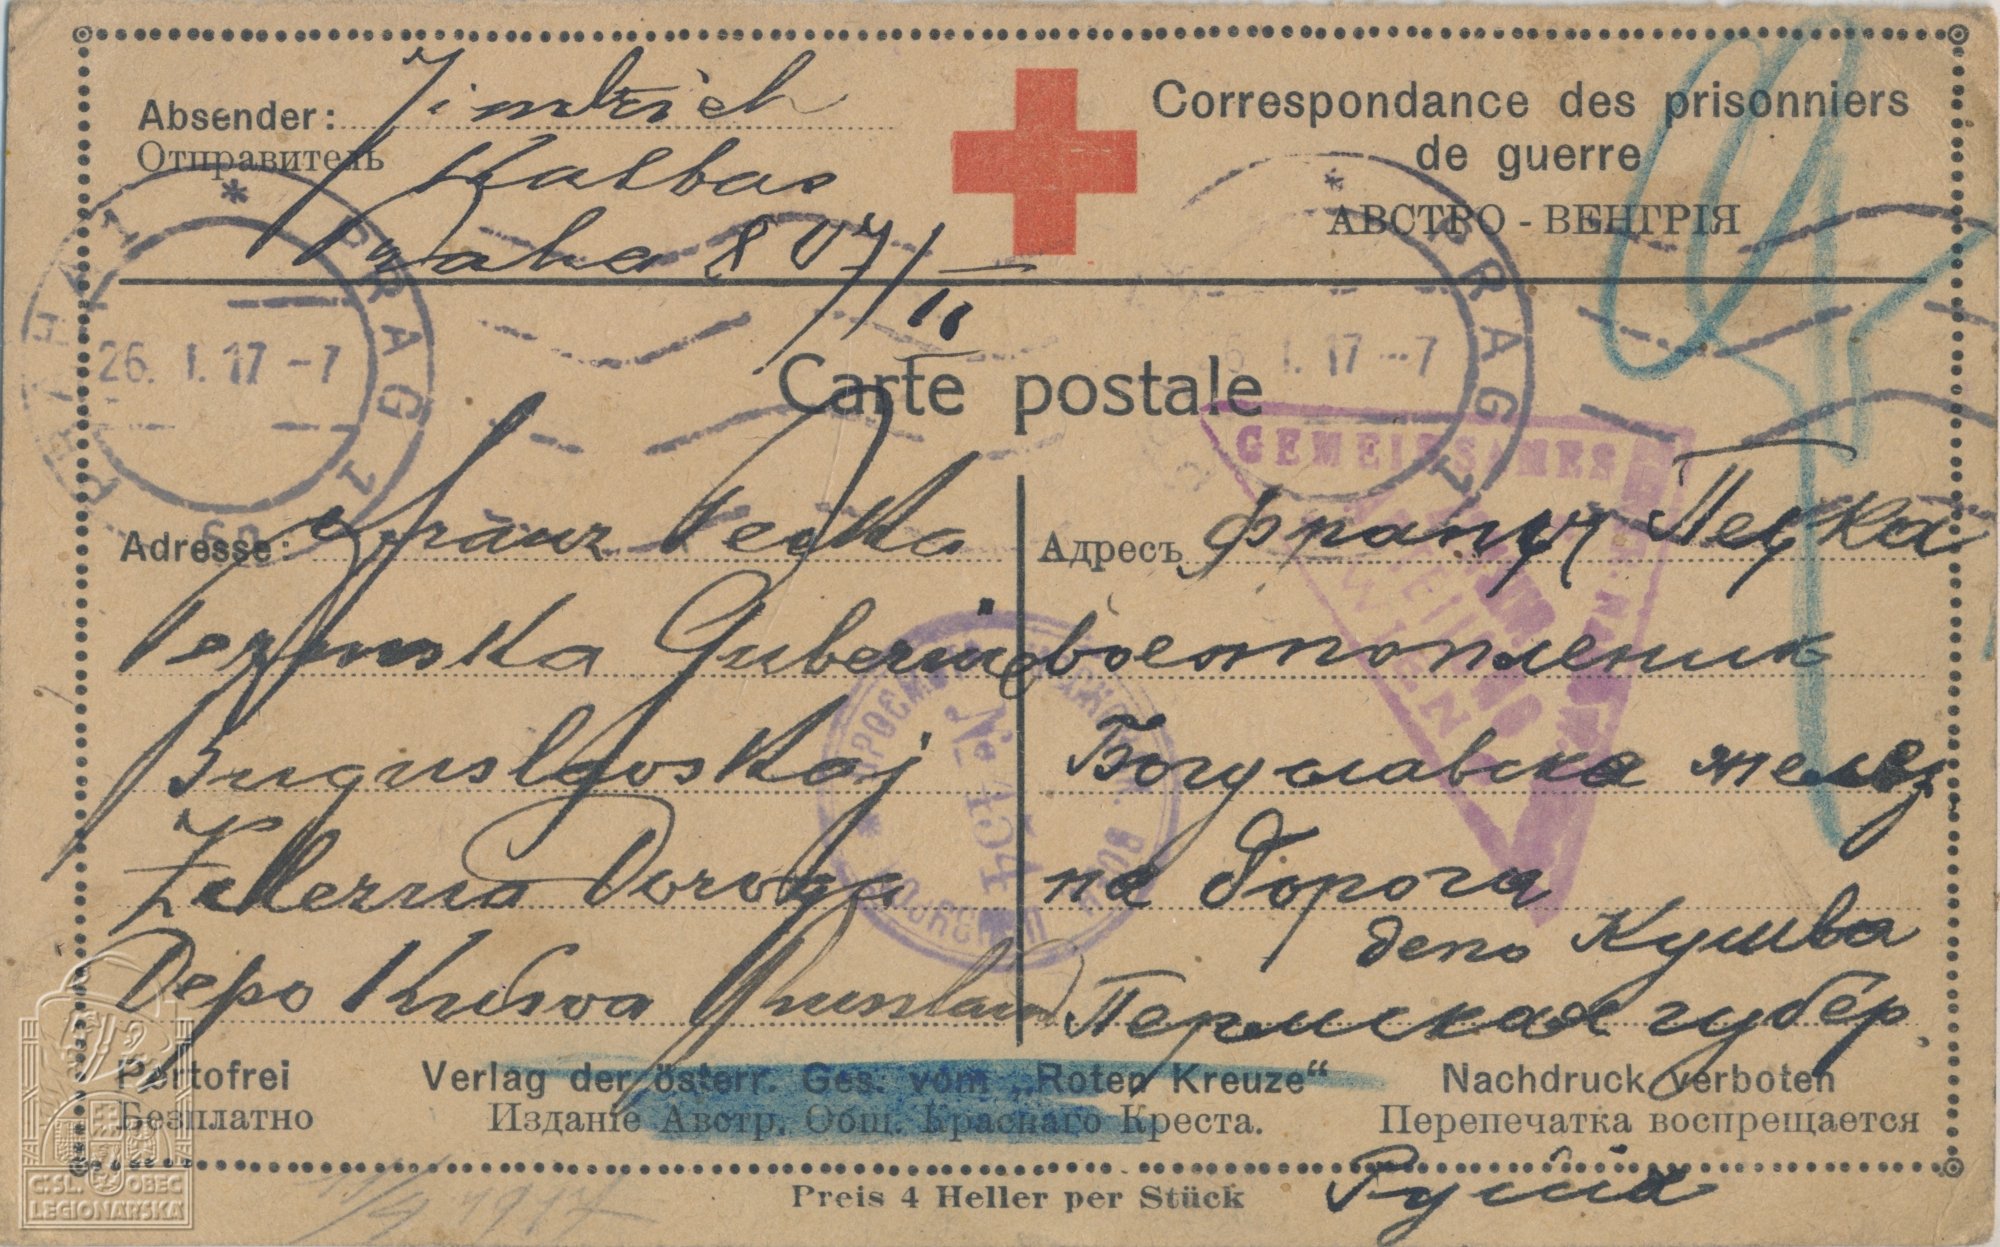 Absender: Jindrich
Отправитель Kalbas
Praha 807/II
Correspondance des prisonniers
de guerre
АВСТРО - ВЕНГРІЯ
Carte postale
PRAG 1
26. I. 17 - 7
PRAG 1
6. I. 17 - 7
GEMEINSAMES
WIEN
Adresse: Franz Pecka
Permska Gubernie
Buguslavskaj
Zelezna Doroga
Depo Kušva Russland
Адресъ Францъ Пецка
военнопленикъ
Богуславска желез
на дорога
депо Кушва
Пермская губер
Русия
№ 1454
Portofrei
Безплатно
Verlag der österr. Ges. vom „Roten Kreuze“
Изданіе Австр. Общ. Краснаго Креста.
Nachdruck verboten
Перепечатка воспрещается
Preis 4 Heller per Stück
11/4 1917
ČSL. OBEC
LEGIONÁŘSKÁ